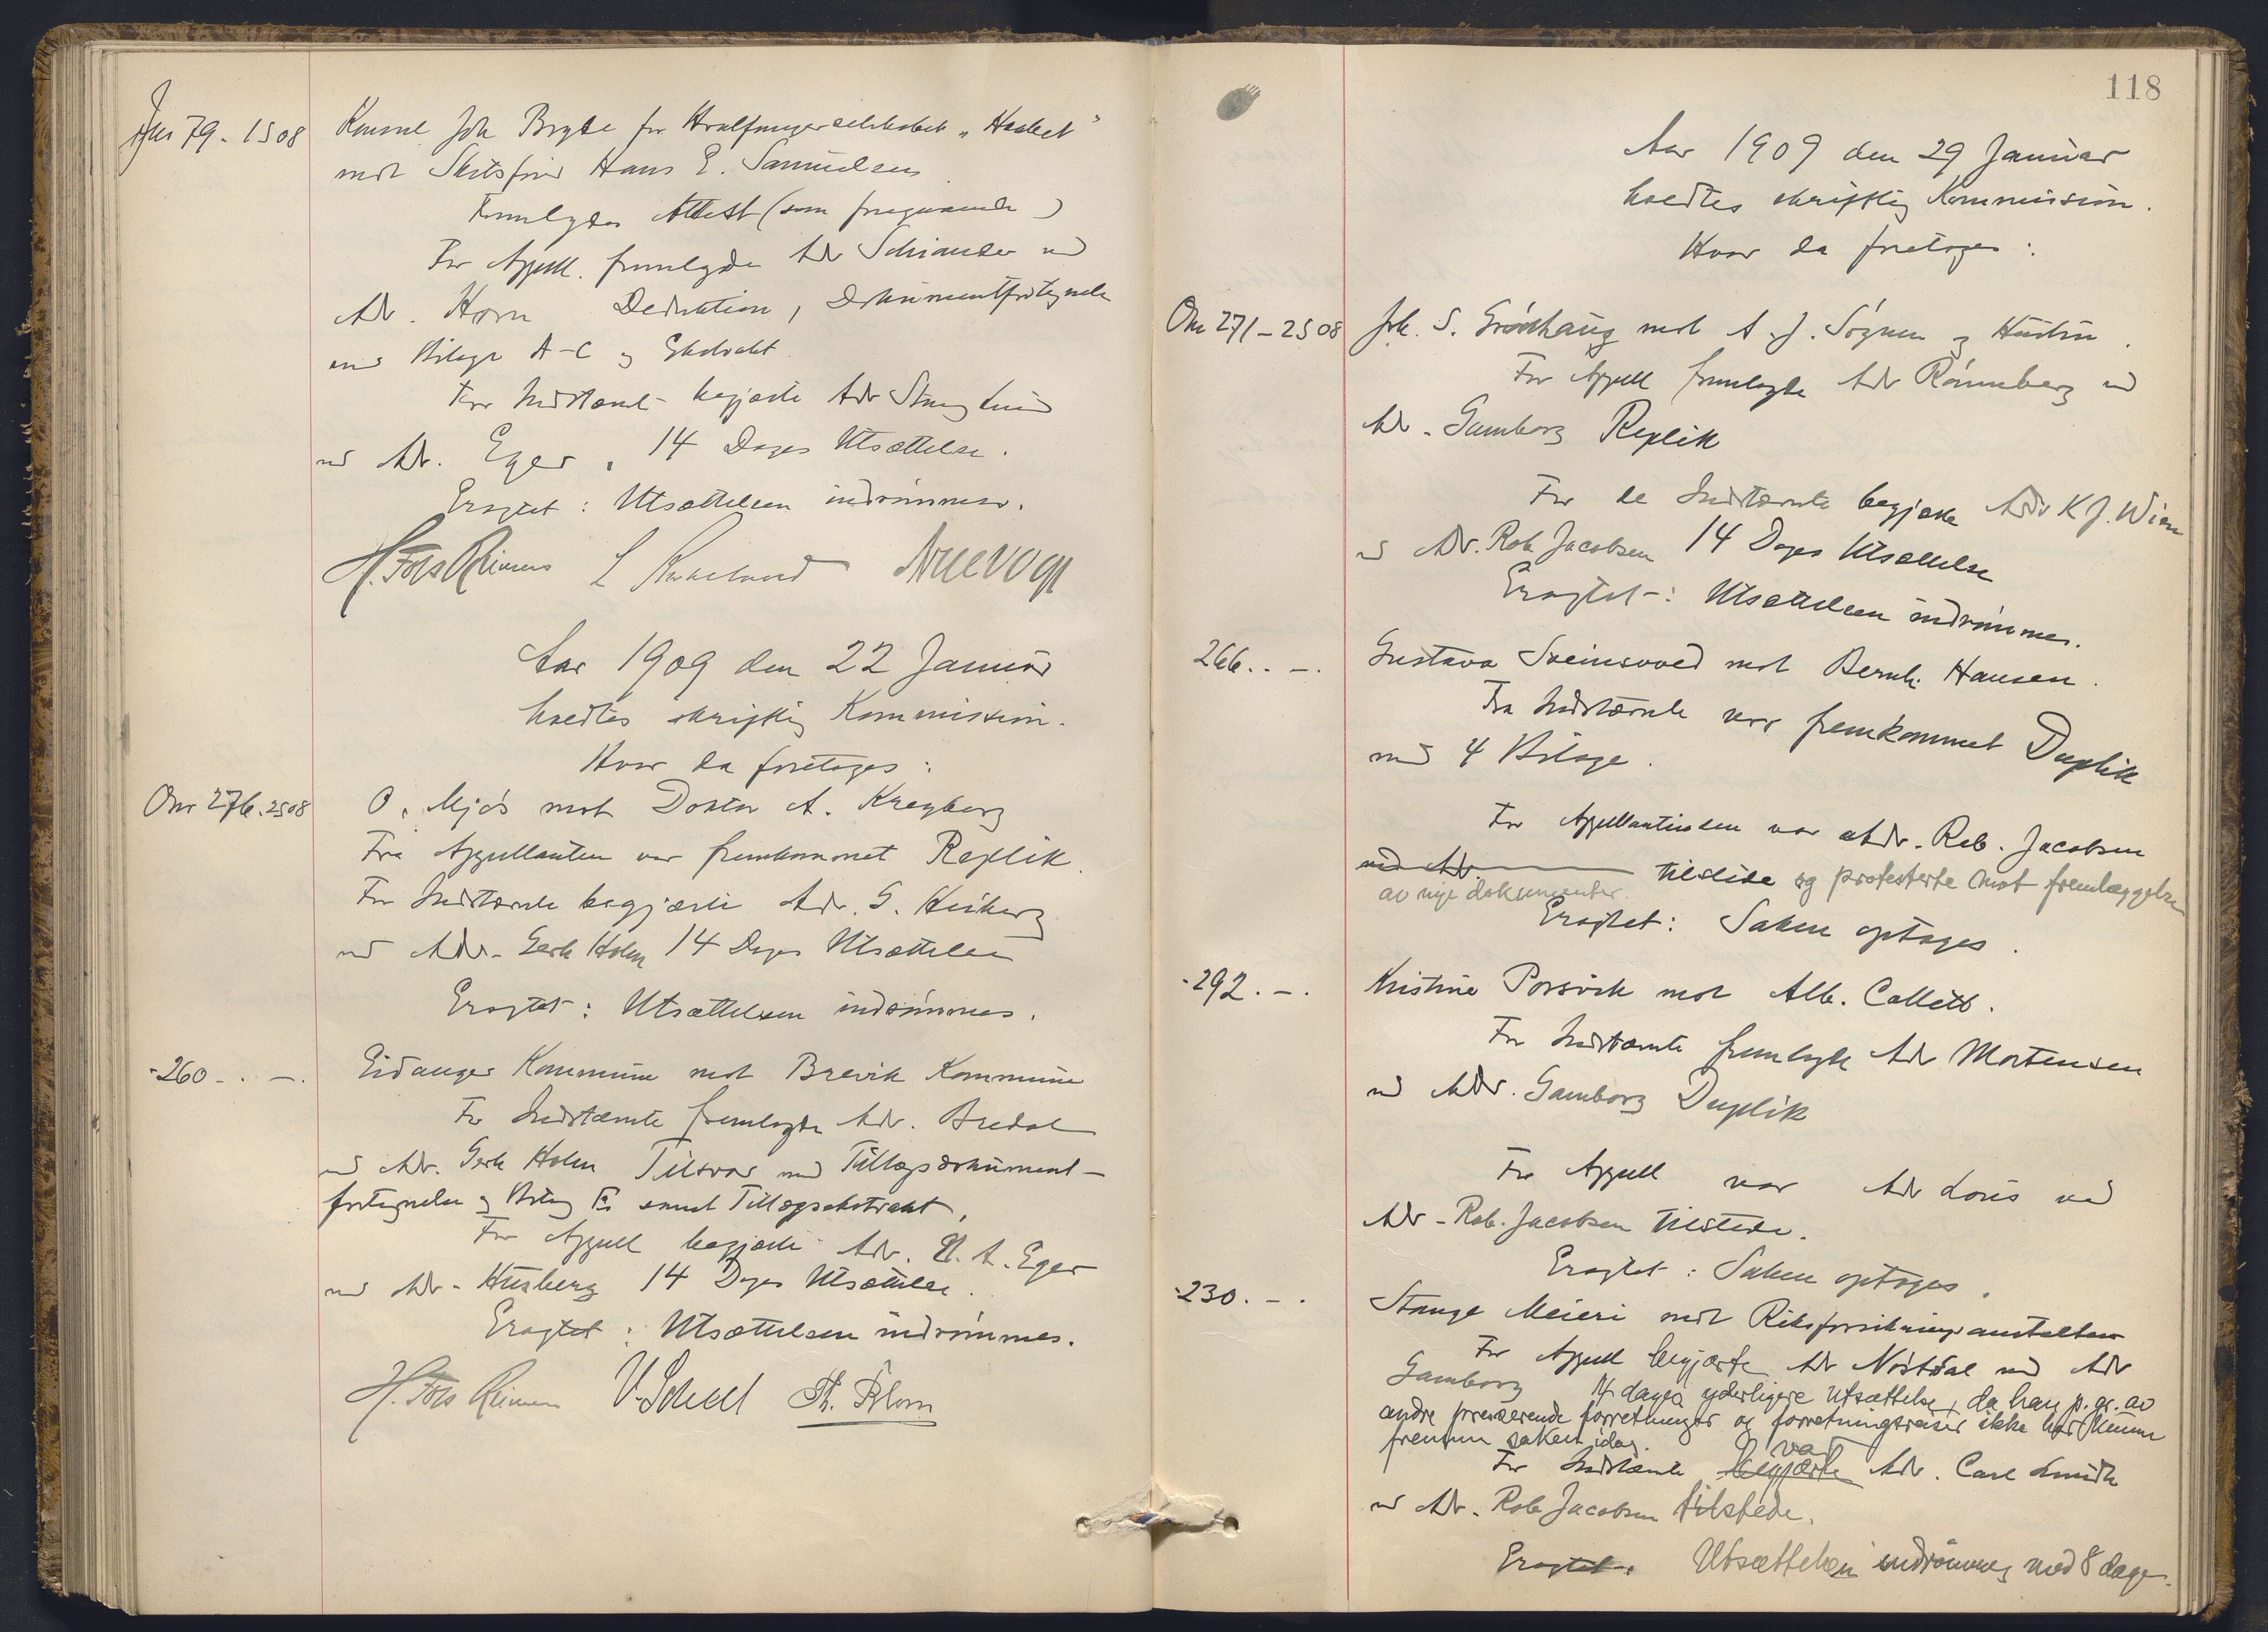 Jnr 79 - 1S08 Konsul Joh Bryde for Hvalfangerselskabet „Haabet"
mot Skibsfører Hans E. Samuelsen
Fremlagdes Attest (som foregaaende)
For Appell. fremlagde Adv Schiander ved
Adv. Horn Deduktion, Dokumentfortegnelse
med Bilage A-C og Ekstrakt.
For Indstævnte begjærte Adv Stang Lund
ved Adv. Eger, 14 Dages Utsættelse.
Eragtet: Utsættelsen indrømmes.
H. Foss Reimers L
Aar 1909 den 22 Januar
holdtes skriftlig Kommission.
Hvor da foretoges:
Onr 276. 2S08 O. Mjøs mot Doktor A. Kreyberg
Fra Appellanten var fremkommet Replik.
For Indstævnte begjærte Adv. G. Heiberg
ved Adv. Gerh Holm 14 Dages Utsættelse
Eragtet: Utsættelsen indrømmes.
- 260 - . - . Eidanger Kommune mot Brevik Kommune
For Indstævnte fremlagde Adv. Bredal
ved Adv. Gerh Holm Tilsvar med Tillægsdokument-
fortegnelse og Bilag samt Tillægsekstrakt.
For Appell begjærte Adv. A. Eger
ved Adv. Husberg 14 Dages Utsættelse.
Eragtet: Utsættelsen indrømmes.
H. Foss Reimers V. Scheel Th. Blom
118
Aar 1909 den 29 Januar
holdtes skriftlig Kommission.
Hvor da foretoges:
Onr 271 - 2S08 Joh. S. Grønhaug mot A. J. Søgnen og Hustru.
For Appell fremlagde Adv Rønneberg ved
Adv. Gamborg Replik
For de Indstævnte begjærte Adv K J. Wiese
ved Adv. Rob Jacobsen 14 Dages Utsættelse
Eragtet: Utsættelsen indrømmes.
266. . - . Gustava Sveinsvoed mot Bernh. Hansen.
Fra Indstævnte var fremkommet Duplik
med 4 Bilage.
For Appellantinden var Adv. Rob. Jacobsen
ved Adv. tilstede og protesterte mot fremlæggelsen
av nye dokumenter.
Eragtet: Saken optages.
- 292. - . Kristine Porsvik mot Alb. Collett.
For Indstævnte fremlagde Adv Mortensen
ved Adv. Gamborg Duplik
For Appell var Adv Lous ved
Adv. Rob. Jacobsen tilstede.
Eragtet: Saken optages.
- 230. - . Stange Meieri mot Riksforsikringsanstalten
For Appell begjærte Adv Nøstdal ved Adv
Gamborg 14 dages yderligere utsættelse, da han p. gr. av
andre presserende forretninger og forretningsreiser ikke har kunne
fremme saken idag.
For Indstævnte begjærte var Adv. Carl Lundh
ved Adv. Rob Jacobsen tilstede.
Eragtet: Utsættelsen indrømmes med 8 dage.